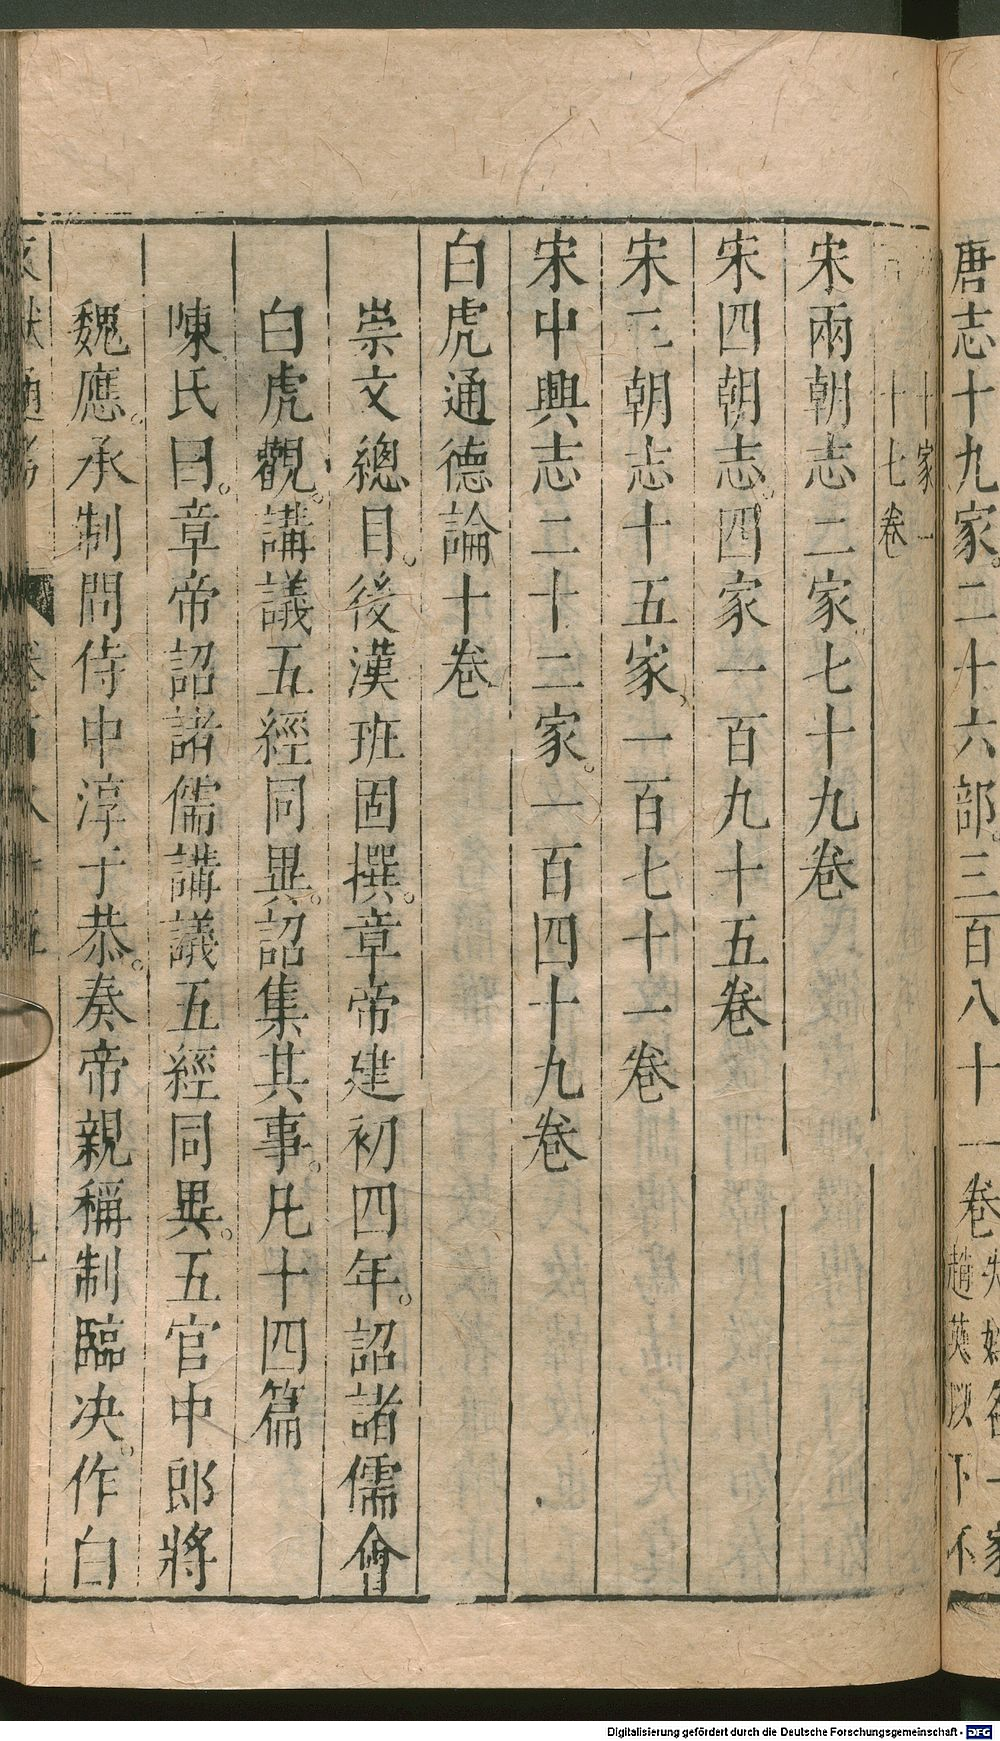 唐志十九家。二十六部。三百八十一卷
趙英以下不
十家一
十七卷
宋兩朝志二家七十九卷
宋四朝志。四家一百九十五卷
宋三朝志十五家、一百七十一卷
宋中興志二十二家。一百四十九卷
白虎通德論十卷
崇文總目。後漢班固撰。章帝建初四年。詔諸儒會
白虎觀。講議五經同異。詔集其事。凡十四篇
陳氏曰。章帝詔諸儒講議五經同異。五官中郎將
魏應。承制問侍中淳于恭。奏帝親稱制臨决。作白
Digitalisierung gefördert durch die Deutsche Forschungsgemeinschaft - DFG